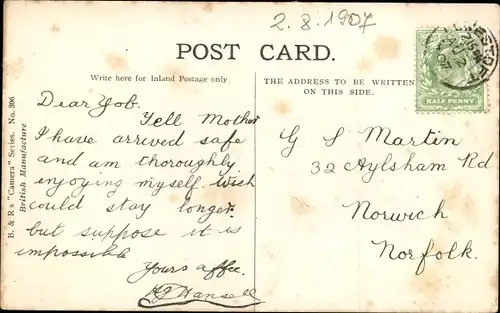 2.8.1907
POST CARD.
Write here for Inland Postage only.
THE ADDRESS TO BE WRITTEN
ON THIS SIDE.
HALF PENNY
B. & R's "Camera" Series. No. 396
British Manufacture
Dear Yob.
Tell Mother
I have arrived safe
and am thoroughly
enjoying myself. Wish
could stay longer.
but suppose it is
impossible
Yours affec.
G S Martin
32 Aylsham Rd
Norwich
Norfolk.